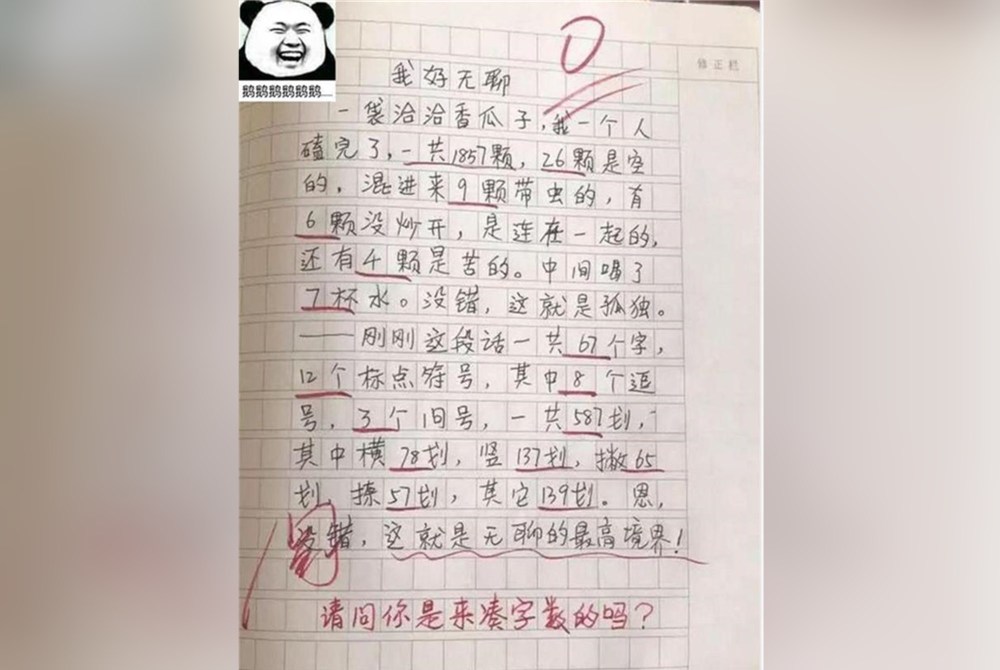 鹅鹅鹅鹅鹅鹅......
0
修正栏
我好无聊
一袋洽洽香瓜子，我一个人
磕完了，一共1857颗，26颗是空
的，混进来9颗带虫的，有
6颗没炒开，是连在一起的，
还有4颗是苦的。中间喝了
7杯水。没错，这就是孤独。
——刚刚这段话一共67个字，
12个标点符号，其中8个逗
号，3个旧号，一共587划，
其中横78划，竖137划，撇65
划，捺57划，其它139划。恩，
没错，这就是无聊的最高境界！
请问你是来凑字数的吗？